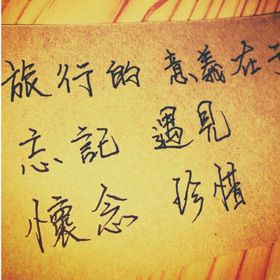 旅行的 意義在
忘記 遇見
懷念 珍惜